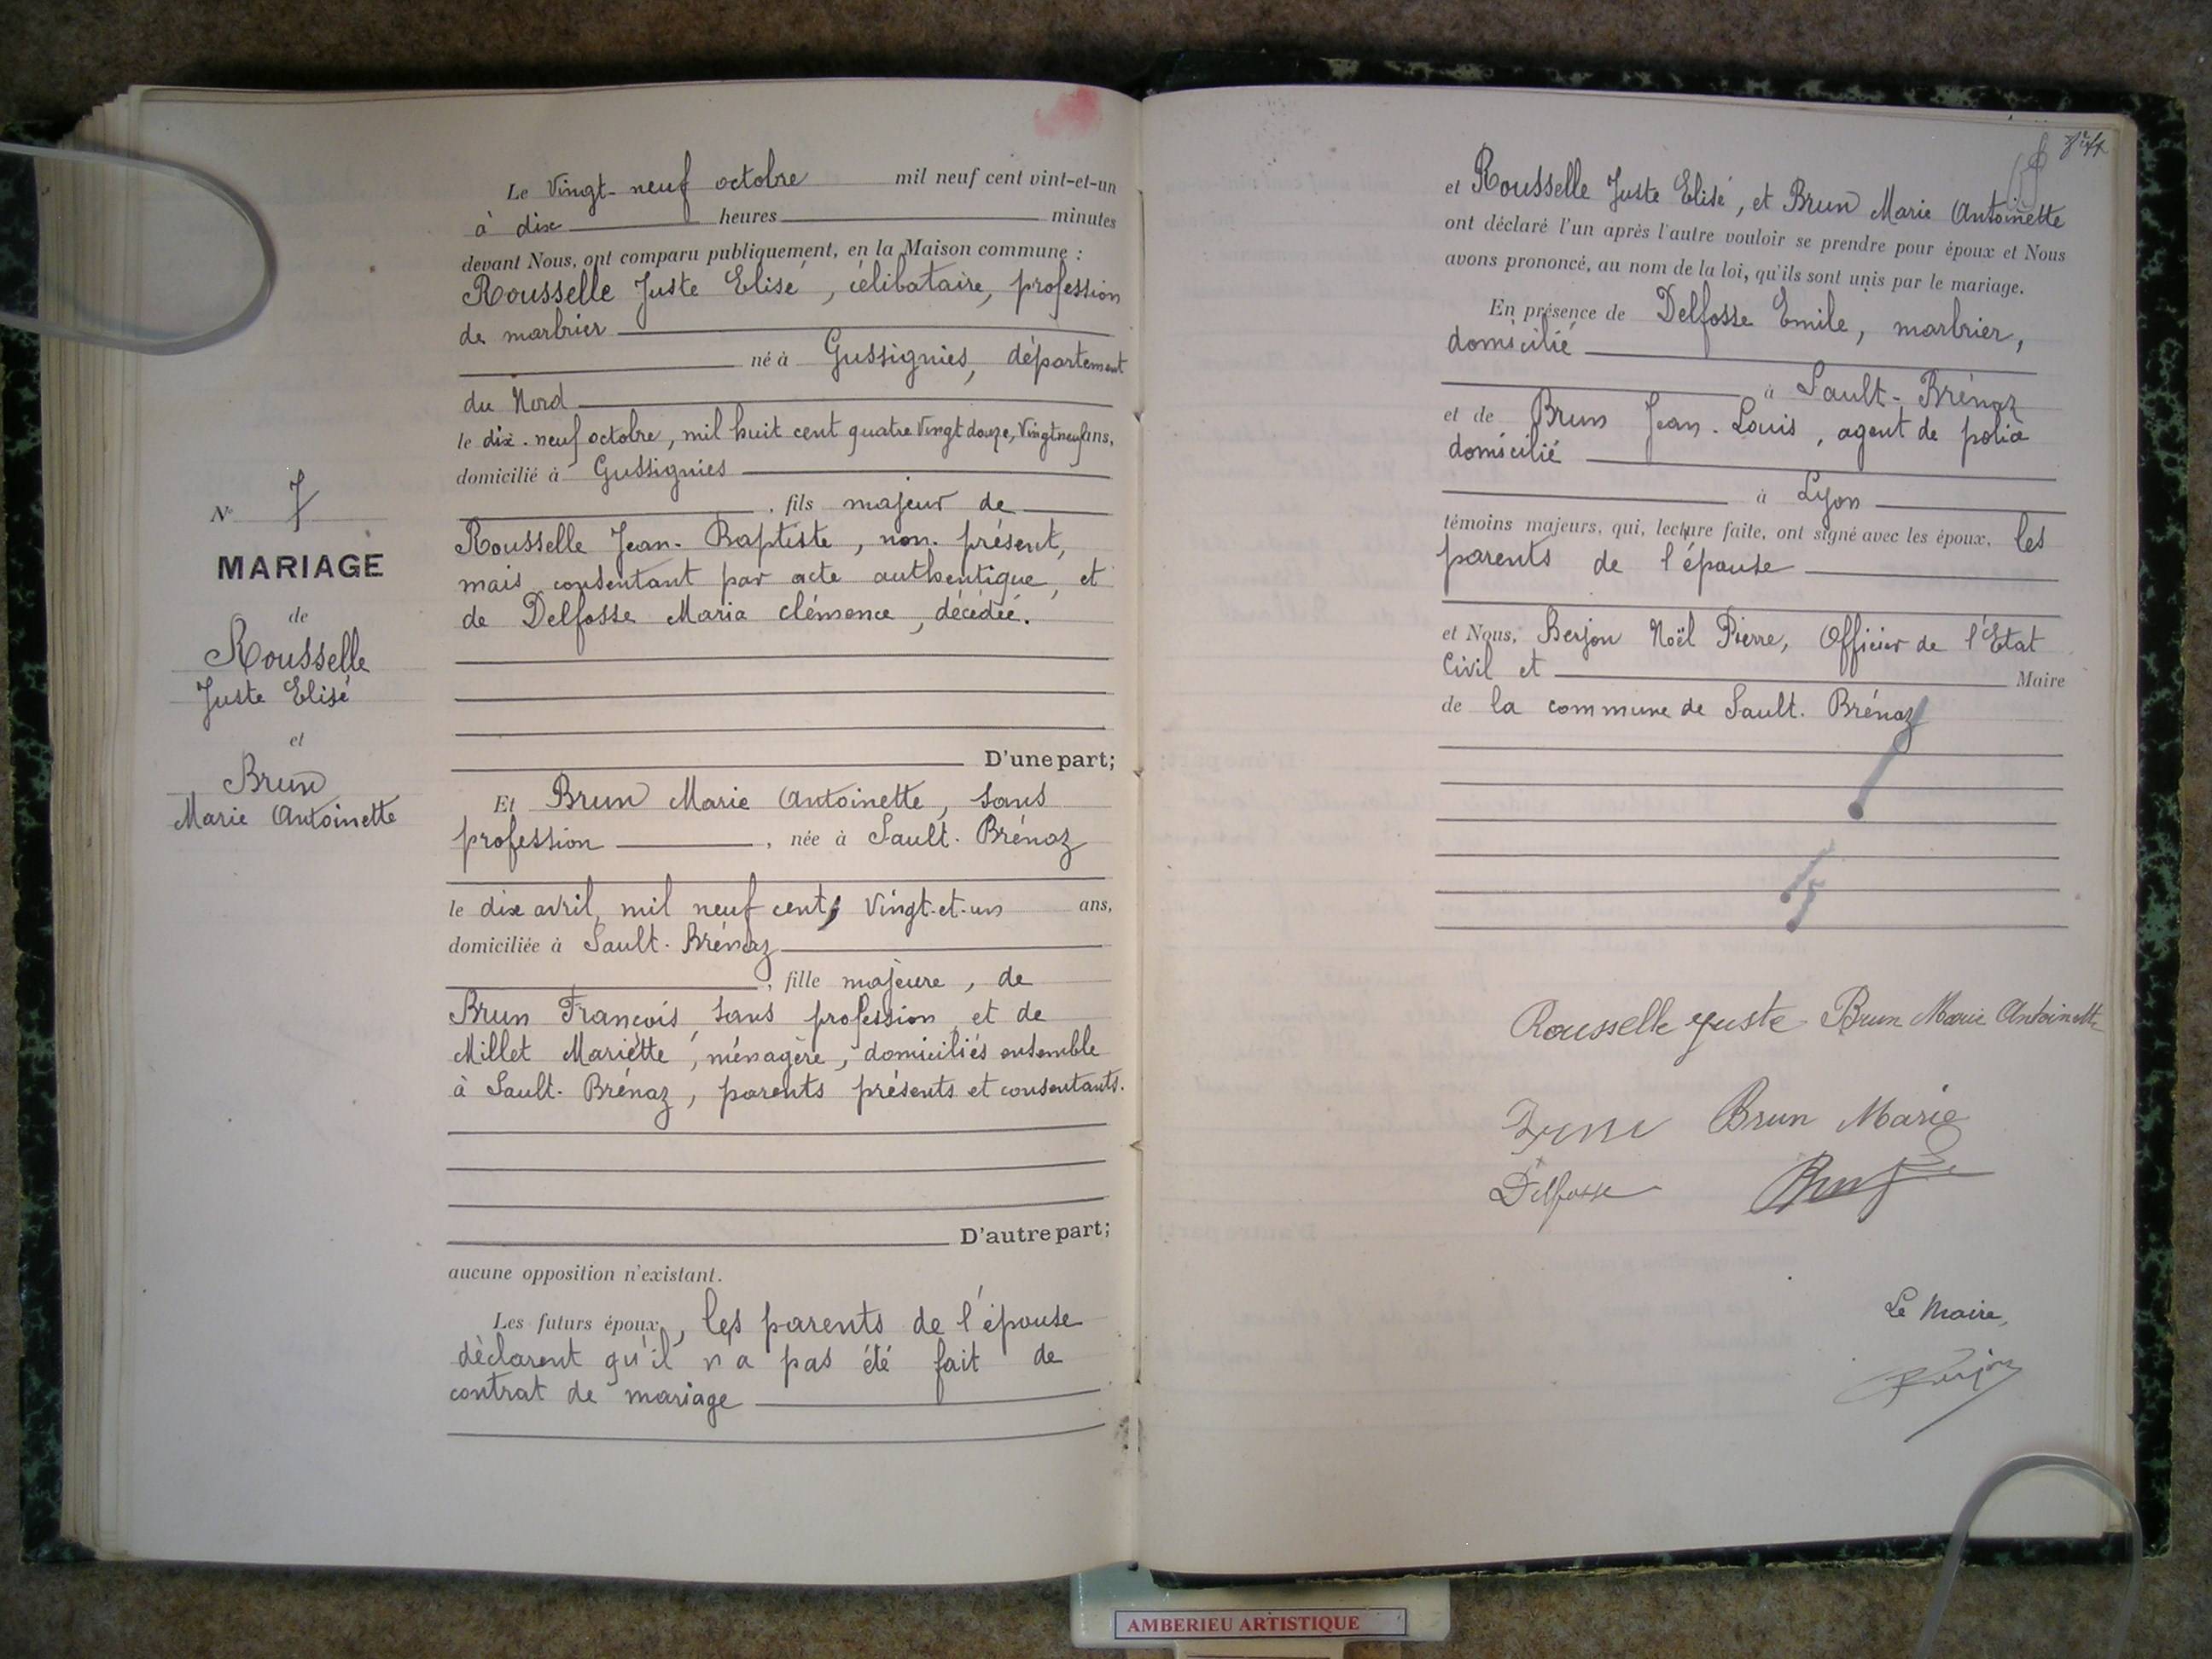 Le Vingt-neuf octobre mil neuf cent vint-et-un
à dix heures minutes
devant Nous, ont comparu publiquement, en la Maison commune :
Rousselle Juste Elisé, célibataire, profession
de marbrier
né à Gussignies, département
du Nord
le dix-neuf octobre, mil huit cent quatre Vingt douze, Vingt neuf ans,
domicilié à Gussignies
, fils majeur de
Rousselle Jean-Baptiste, non présent,
mais consentant par acte authentique, et
de Delfosse Maria Clémence, décédée.
D'une part;
Et Brun Marie Antoinette, sans
profession, née à Sault-Brénaz
le dix avril, mil neuf cent, Vingt-et-un ans,
domiciliée à Sault-Brénaz
, fille majeure, de
Brun François, sans profession, et de
Millet Mariètte, ménagère, domiciliés ensemble
à Sault-Brénaz, parents présents et consentants.
D'autre part;
aucune opposition n'existant.
Les futurs époux, les parents de l'épouse
dèclarent qu'il n'a pas été fait de
contrat de mariage
N° 7
MARIAGE
de
Rousselle
Juste Elisé
et
Brun
Marie Antoinette
et Rousselle Juste Elisé, et Brun Marie Antoinette
ont déclaré l'un après l'autre vouloir se prendre pour époux et Nous
avons prononcé, au nom de la loi, qu'ils sont unis par le mariage.
En présence de Delfosse Emile, marbrier,
domicilié
à Sault-Brénaz
et de Brun Jean-Louis, agent de police
domicilié
à Lyon
témoins majeurs, qui, lecture faite, ont signé avec les époux, les
parents de l'épouse
et Nous, Berjon Noël Pierre, Officier de l'Etat
Civil et Maire
de la commune de Sault-Brénaz
Rousselle Juste Brun Marie Antoinette
Brun Marie
Delfosse
Le Maire,
Berjon
AMBERIEU ARTISTIQUE